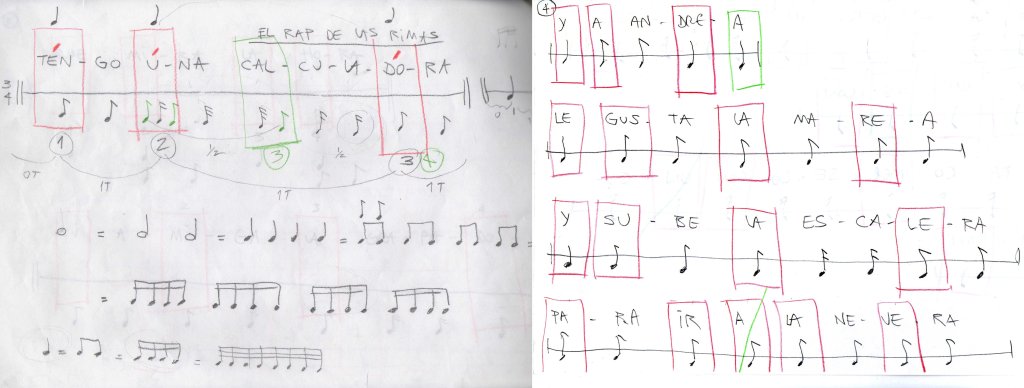 EL RAP DE LAS RIMAS
TÉN-GO Ú-NA CAL-CU-LA-DÓ-RA
3
4
1 2 3 3 4
0T 1T 1/2 1T 1/2 1T
= = = =
=
= = =
4
Y A AN-DRE-A
LE GUS-TA LA MA-RE-A
Y SU-BE LA ES-CA-LE-RA
PA-RA IR A LA NE-VE-RA